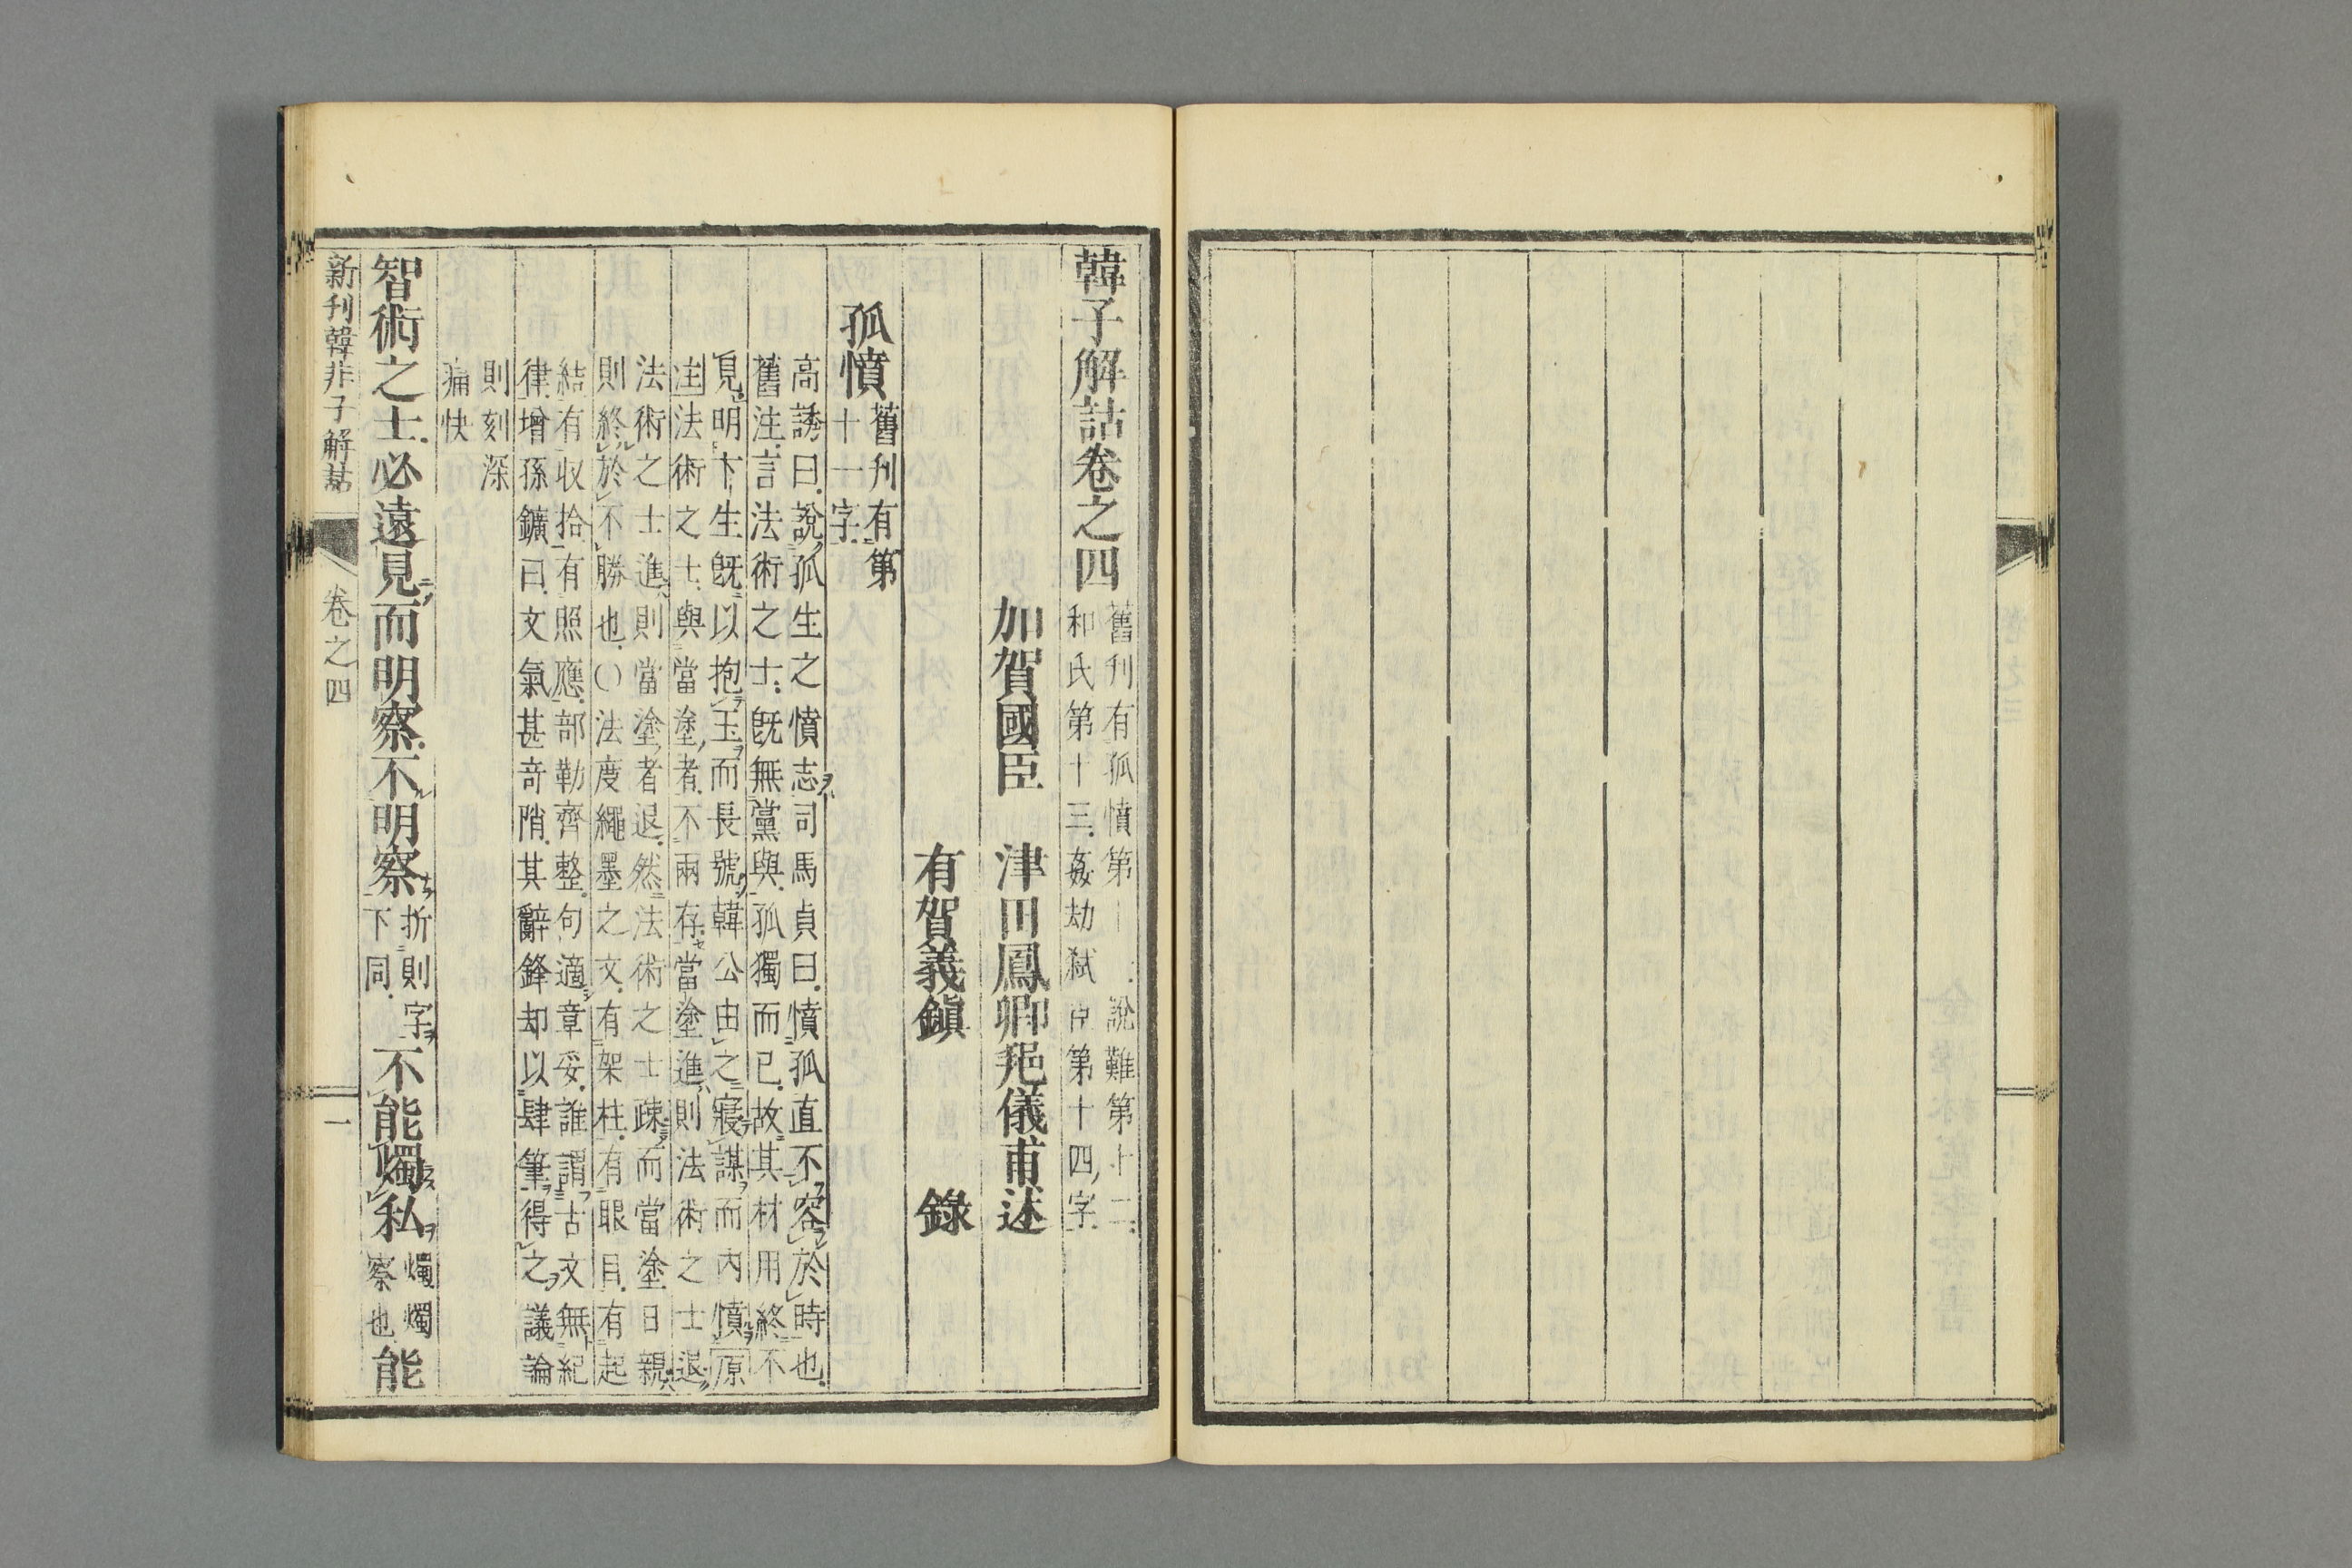 韓子解詁卷之四
舊刊有孤憤第十一.說難第十二.
和氏第十三.姦劫弑臣第十四字.
加賀國臣 津田鳳卿邦儀甫述
有賀義鎭 錄
孤憤
舊刊有第
十一字.
高誘曰.說孤生之憤志司馬貞曰.憤孤直不容於時也.
舊注.言法術之士.既無黨與.孤獨而已.故其材用終不
見明卞生既以抱玉而長號韓公由之寢謀而內憤原
注法術之士與當塗者不兩存當塗進則法術之士退
法術之士進則當塗者退.然法術之士疎而當塗日親
則終於不勝也.〇法度繩墨之文.有架柱.有眼目.有起
結有収拾有照應.部勒齊整.句適章妥.誰謂古文無紀
律增孫鑛曰.文氣甚奇陗.其辭鋒却以肆筆得之議論
則刻深
痛快
智術之士.必遠見而明察.不明察
折則字
下同.
不能燭私
燭燭
察也.
能
新刊韓非子解詁 卷之四 一